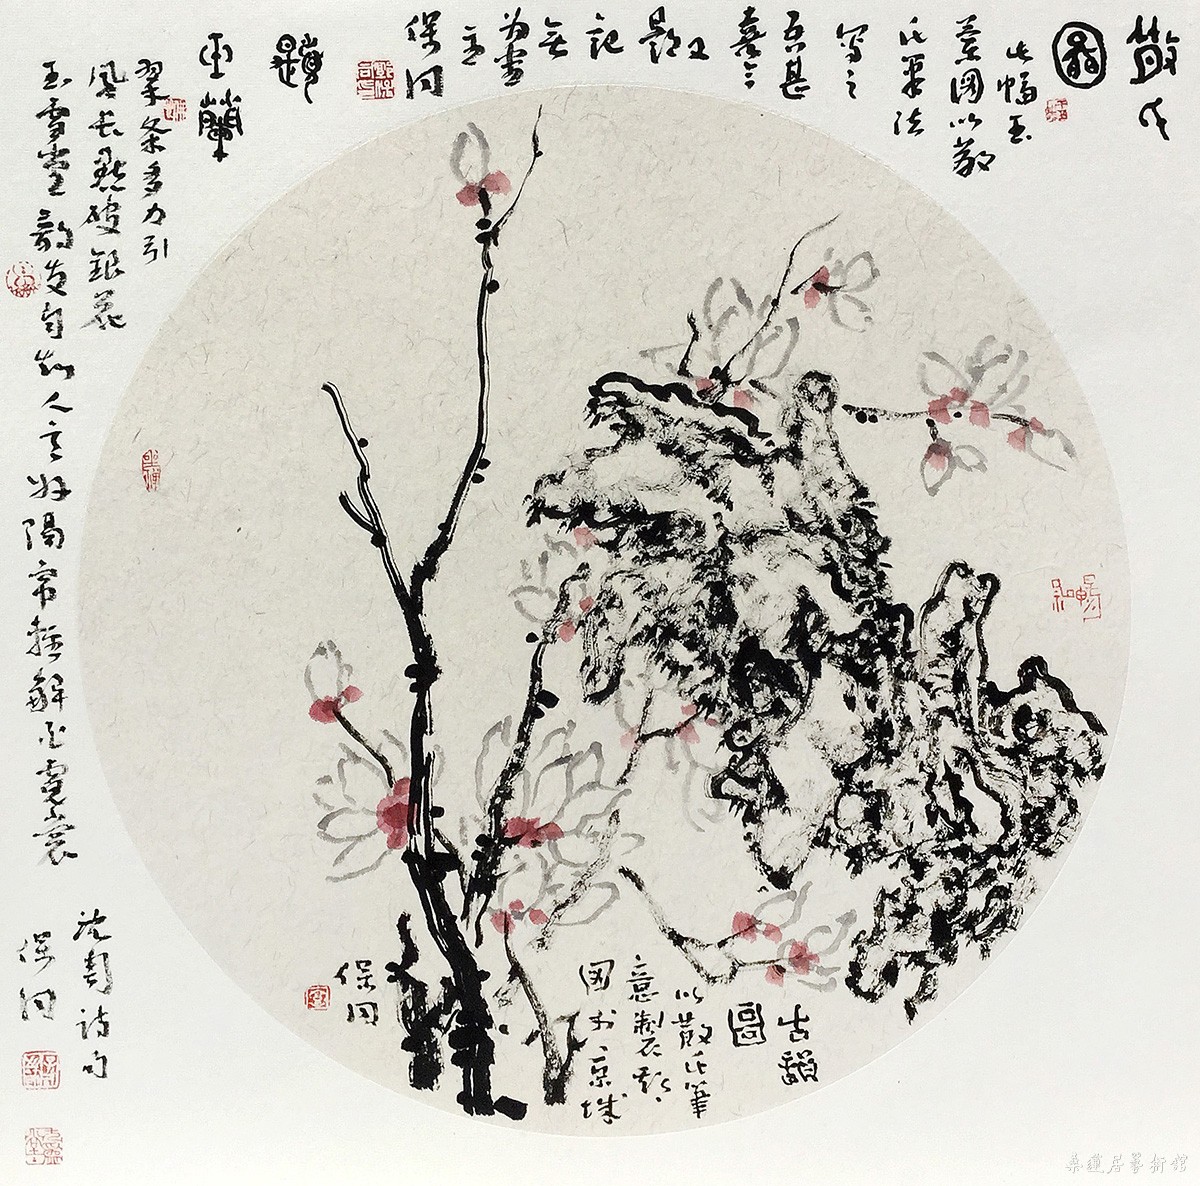 散氏
圖
此幅玉
蘭圖以散
氏筆法
寫之
吾甚
喜之
題上
記
為書
意
保同
題
玉蘭
翠条多力引
風長點破銀花
玉雪香韵友自知人意好隔帘輕解白霓裳
沈周詩句
保同
古韻
圖
以散氏筆
意製
図於京城
保同
桑蓮居藝術館